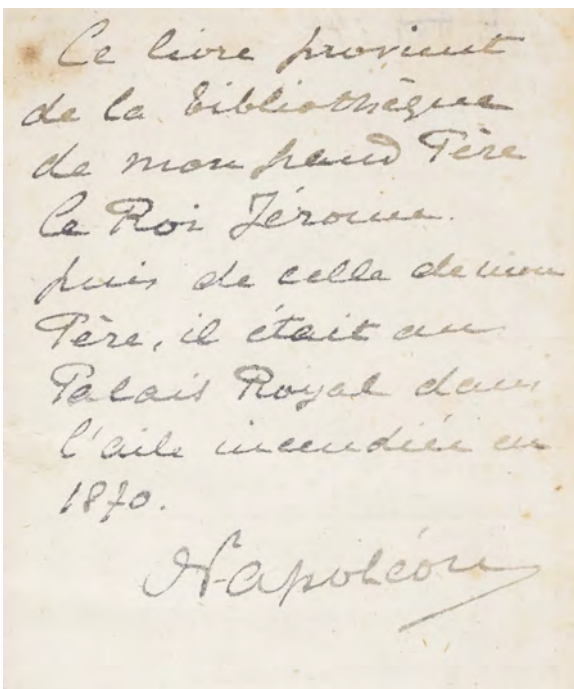 Ce livre provient
de la Bibliothèque
de mon grand Père
Le Roi Jérome.
puis de celle de mon
Père, il était au
Palais Royal dans
l'aile incendiée en
1870.
Napoléon